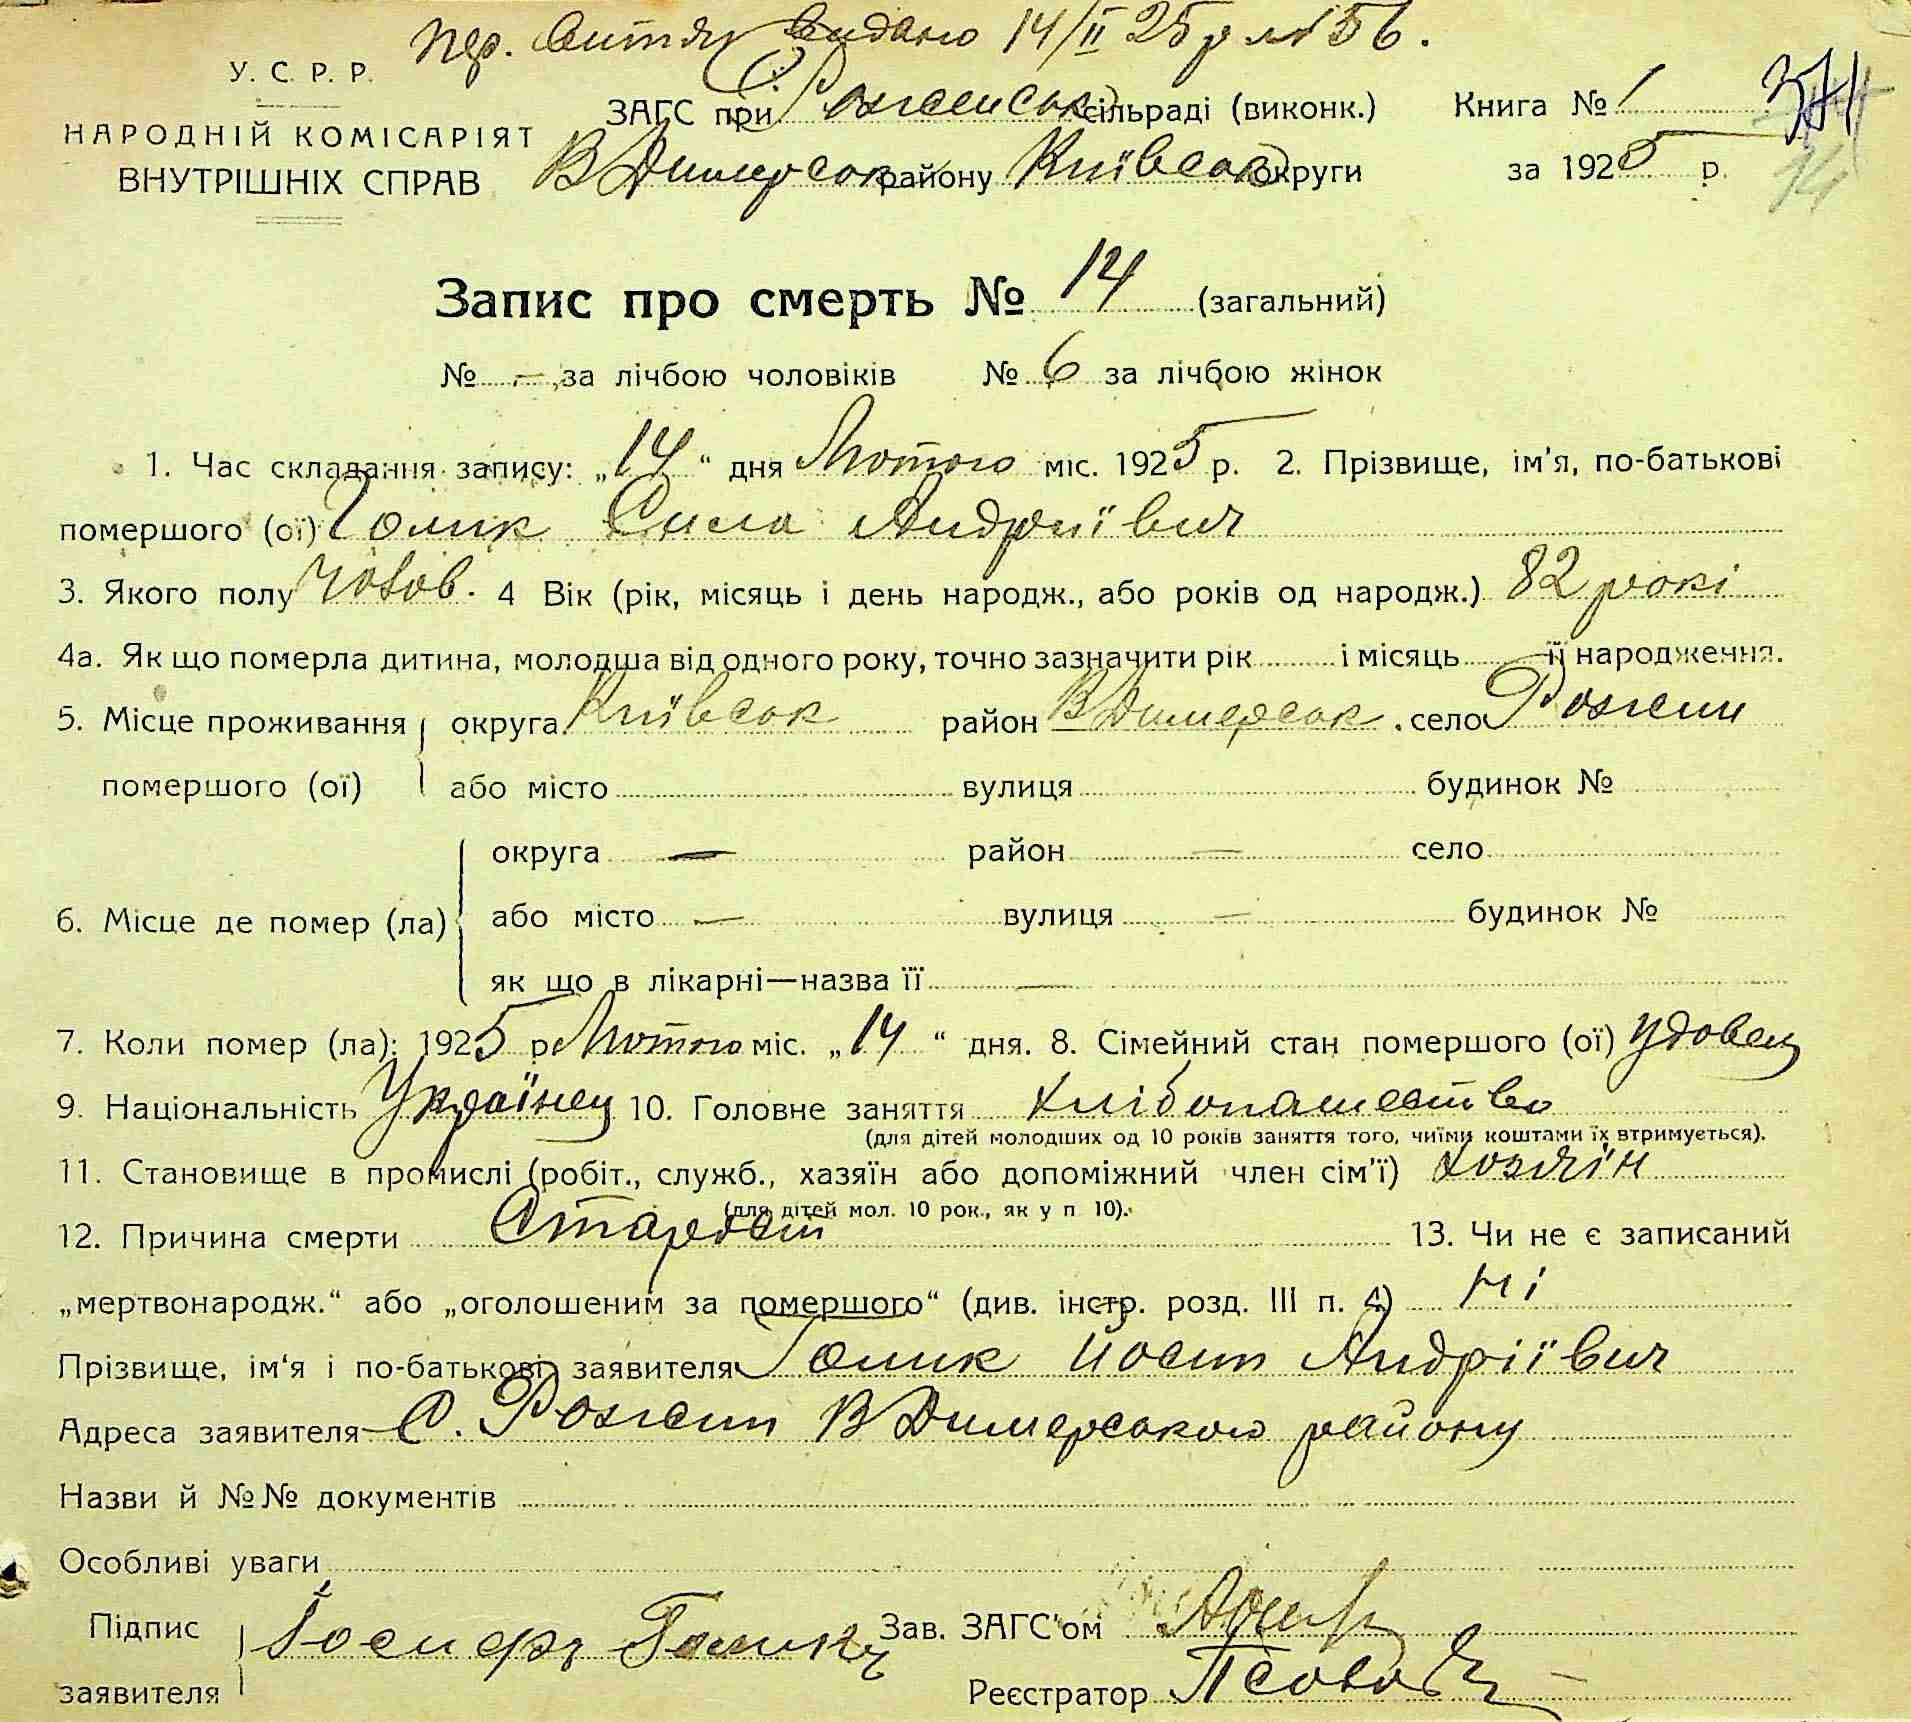 Пер. витяг видано 14/II 25 р № 56.
У. С. Р. Р.
НАРОДНІЙ КОМІСАРІЯТ
ВНУТРІШНІХ СПРАВ
ЗАГС при Роженськ сільраді (виконк.) Книга № 1
В Димерськ району Київськ округи за 1925 р.
14
Запис про смерть № 14 (загальний)
№ — за лічбою чоловіків № 6 за лічбою жінок
1. Час складання запису: „14“ дня Лютого міс. 1925 р. 2. Прізвище, ім'я, по-батькові
помершого (ої) Голик Сила Андріївич
3. Якого полу Чолов. 4 Вік (рік, місяць і день народж., або років од народж.) 82 рокі
4а. Як що померла дитина, молодша від одного року, точно зазначити рік і місяць її народження.
5. Місце проживання округа Київськ район В Димерськ. село Рожени
помершого (ої) або місто вулиця будинок №
округа — район — село
6. Місце де помер (ла) або місто — вулиця — будинок №
як що в лікарні—назва її —
7. Коли помер (ла): 1925 р Лютого міс. „14“ дня. 8. Сімейний стан помершого (ої) Удовец
9. Національність Українец 10. Головне заняття хлібопашество
(для дітей молодших од 10 років заняття того, чиїми коштами їх втримується).
11. Становище в промислі (робіт., служб., хазяїн або допоміжний член сім'ї) хозяін
(для дітей мол. 10 рок., як у п 10).
12. Причина смерти Старост 13. Чи не є записаний
„мертвонародж.“ або „оголошеним за помершого“ (див. інстр. розд. III п. 4) Ні
Прізвище, ім'я і по-батькові заявителя Голик Йосип Андріївич
Адреса заявителя С. Рожени В Димерського району
Назви й №№ документів
Особливі уваги
Підпис Іосифъ Голикъ Зав. ЗАГС'ом
заявителя Реєстратор